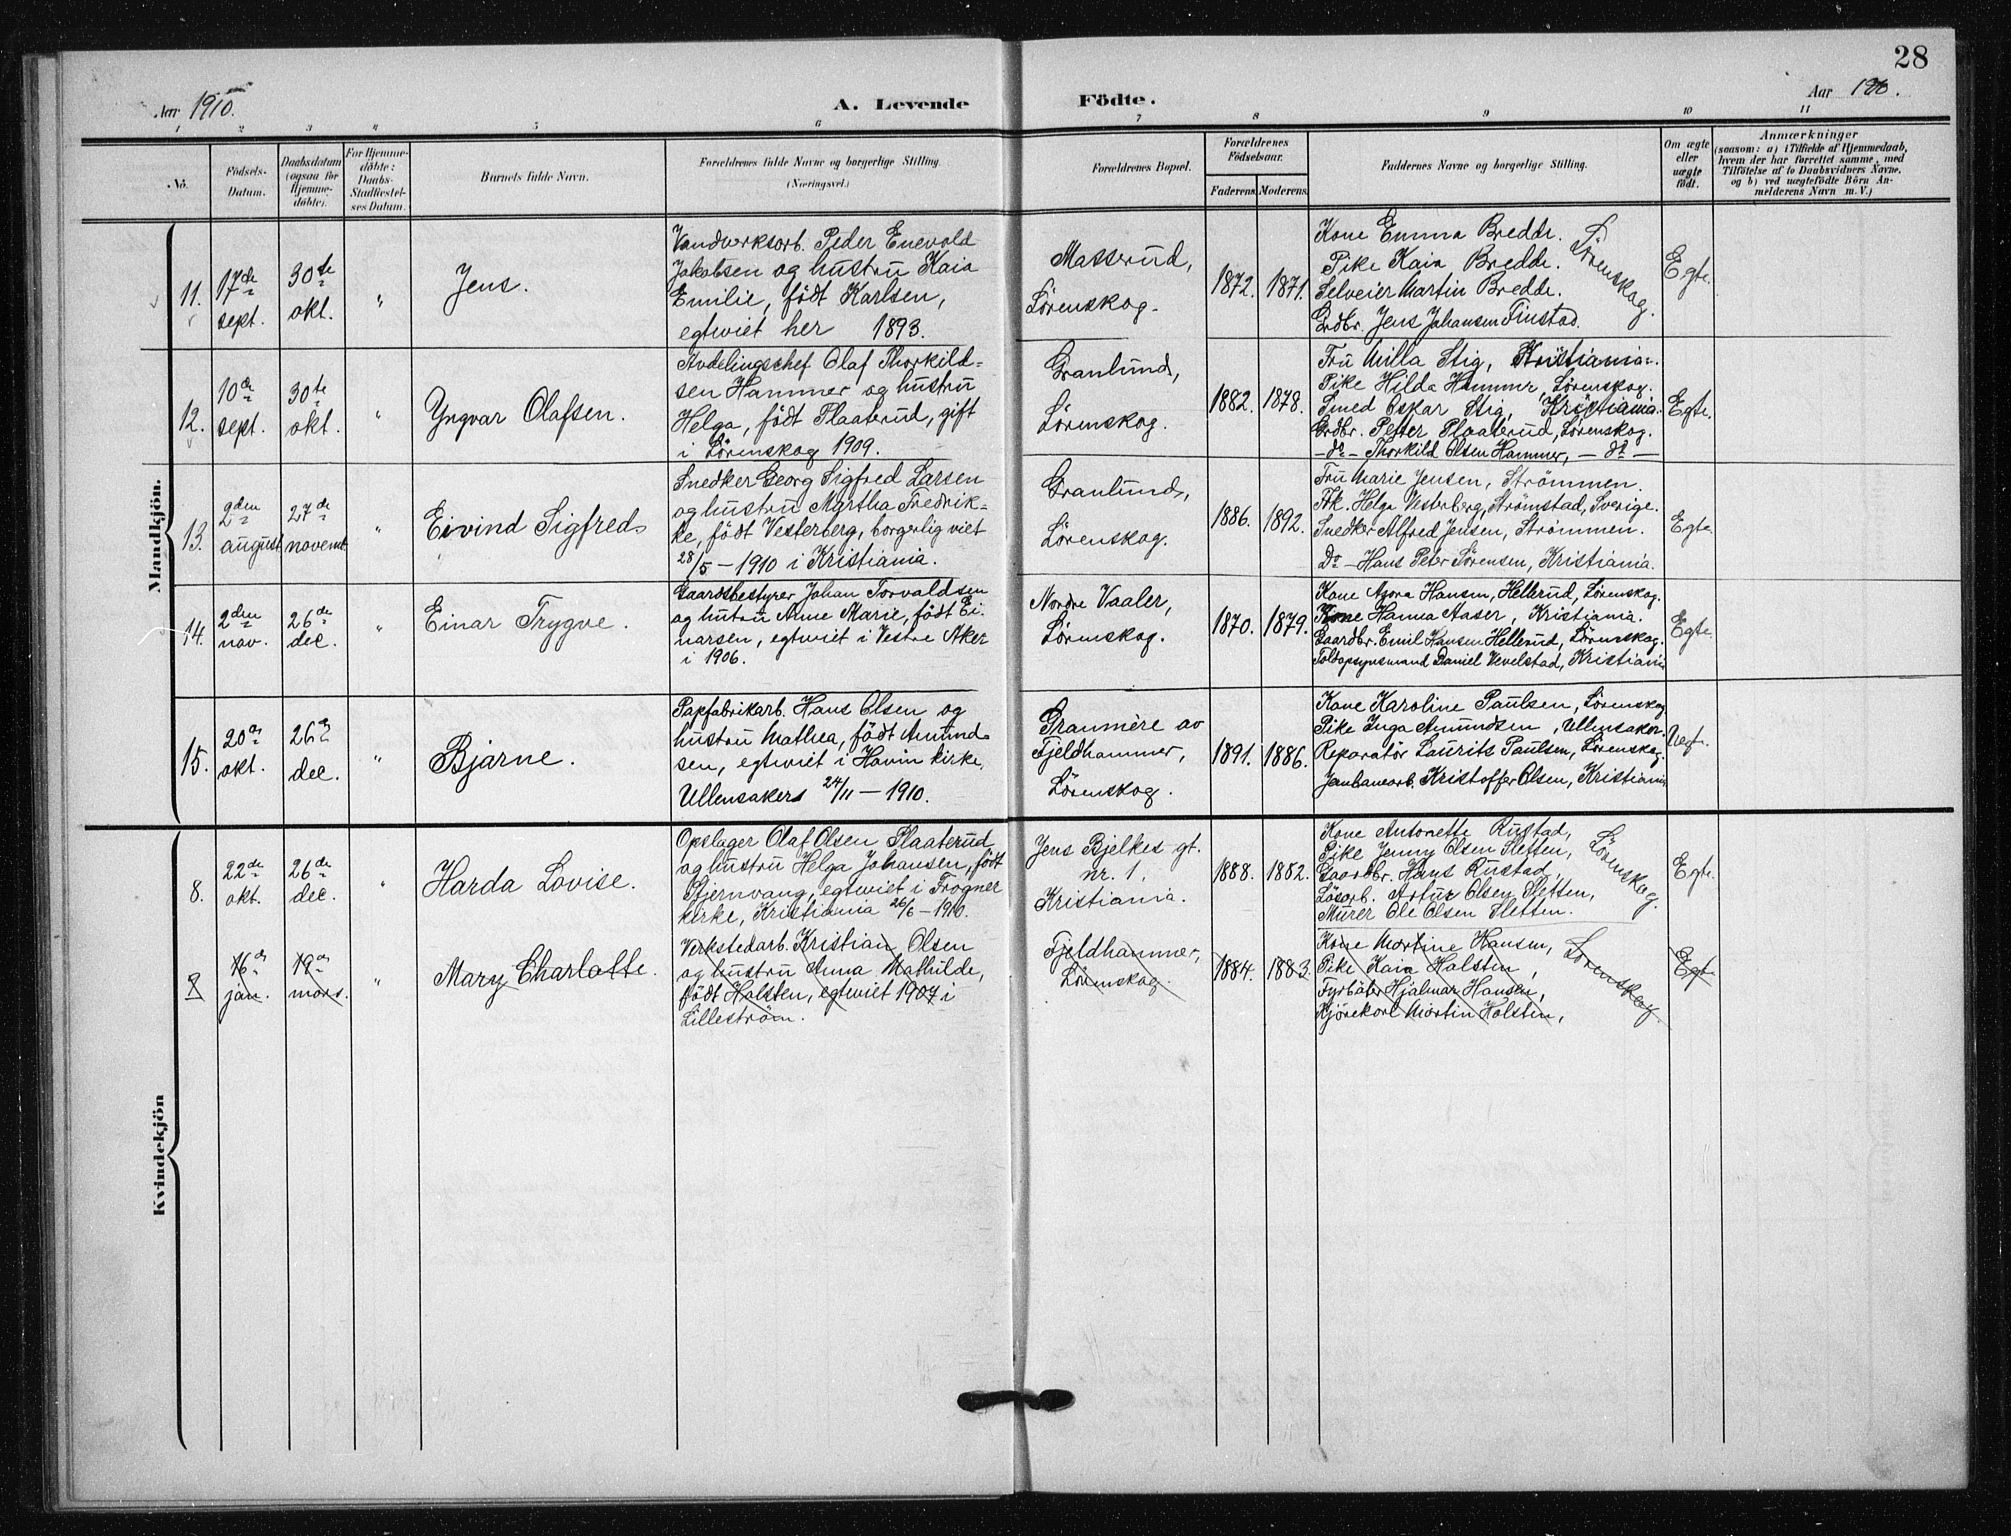 28
Aar 1910.
A. Levende Födte.
Aar 190.
1 2 3 4 5 6 7 8 9 10 11
No.
Födsels-
Datum.
Daabsdatum
(ogsaa for
Hjemme-
döbte).
For Hjemme-
döbte:
Daabs-
Stadfæstel-
ses Datum.
Barnets fulde Navn.
Forældrenes fulde Navne og borgerlige Stilling
(Næringsvei.)
Forældrenes Bopæl.
Forældrenes
Födselsaar.
Faderens. Moderens.
Faddernes Navne og borgerlige Stilling.
Om ægte
eller
uægte
födt.
Anmærkninger
(saasom: a) i Tilfælde af Hjemmedaab,
hvem der har forrettet samme, med
Tilföielse af to Daabsvidners Navne,
og b) ved uægtefödte Börn An-
melderens Navn m. V.)
Mandkjön.
11.
17de
sept.
30te
okt.
"
Jens.
Vandverksarb. Peder Enevold
Jakobsen og hustru Kaia
Emilie, född Karlsen,
egtviet her 1893.
Masserud,
Lørenskog.
1872. 1871.
Kone Emma Bredde.
Pike Kaia Bredde.
Selveier Martin Bredde.
Grdbr. Jens Johansen Finstad.
Lørenskog.
Egte.
12.
10de
sept.
30te
okt.
"
Yngvar Olafsen.
Avdelingschef Olaf Thorkild-
sen Hammer og hustru
Helga, född Plaaterud, gift
i Lørenskog 1909.
Granlund,
Lørenskog.
1882. 1878.
Fru Milla Stig, Kristiania.
Pike Hilda Hammer, Lørenskog.
Smed Oskar Stig, Kristiania.
Grdbr. Petter Plaaterud, Lørenskog.
- do - Thorkild Olsen Hammer, - do -
Egte.
13.
2den
august
27de
novemb.
"
Eivind Sigfred
Snedker Georg Sigfred Larsen
og hustru Myrtha Fredrik-
ke, född Vesterberg, borgerlig viet
28/5 - 1910 i Kristiania.
Granlund,
Lørenskog.
1886. 1892.
Fru Marie Jensen, Strömmen.
Frk. Helga Vesterberg, Strömstad, Sverige.
Snedker Alfred Jensen, Strömmen.
Do - Hans Peter Sørensen, Kristiania.
Egte.
14.
2den
nov.
26de
dec.
"
Einar Trygve.
Gaardsbestyrer Johan Torvaldsen
og hutru Anne Marie, född Ei-
narsen, egtviet i Vestre Aker
i 1906.
Nordre Vaaler,
Lørenskog.
1870. 1879.
Kone Agora Hansen, Hellerud, Lörenskog.
Kone Hanna Aaser, Kristiania.
Gaardbr. Emil Hansen Hellerud, Lörenskog.
Toldopsynsmand Daniel Vevelstad, Kristiania
Egte.
15.
20de
okt.
26de
dec.
"
Bjarne.
Papfabrikarb. Hans Olsen og
hustru Mathea, född Amund-
sen, egtviet i Hovin kirke,
Ullensakers 24/11 - 1910.
Granmère av
Fjeldhammer,
Lørenskog.
1891. 1886.
Kone Karoline Paulsen, Lörenskog
Pike Inga Amundsen, Ullensaker.
Reparatør Laurits Paulsen, Lörenskog.
Jernbanearb. Kristoffer Olsen, Kristiania
Kvindekjön
8.
22de
okt.
26de
dec.
"
Harda Lovise.
Opslager Olaf Olsen Plaaterud
og hustru Helga Johansen, född
Stjernvang, egtviet i Frogner
kirke, Kristiania 26/6 - 1910.
Jens Bjelkes gt.
nr. 1,
Kristiania.
1888. 1882.
Kone Antonette Rustad,
Pike Jenny Olsen Sletten,
Gaardbr. Hans Rustad,
Lösarb. Artur Olsen Sletten,
Murer Ole Olsen Sletten.
Lørenskog.
Egte.
9
16de
jan.
19de
mars.
"
Mary Charlotte.
Verkstedarb. Kristian Olsen
og hustru Anna Mathilde,
född Holsten, egtviet 1907 i
Lilleström.
Fjeldhammer,
Lørenskog.
1884. 1883.
Kone Martine Hansen,
Pike Kaia Holsten,
Fyrböter Hjalmar Hansen,
Kjörekarl Martin Holsten,
Lørenskog.
Egt.